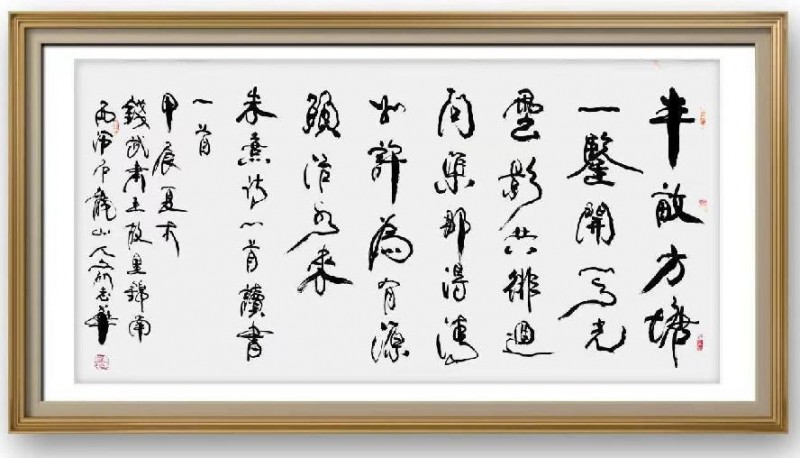 半畝方塘
一鑒開天光
雲影共徘徊
問渠那得清
如許為有源
頭活水來
朱熹詩一首讀書
一首
甲辰夏於
錢武肅王故里錦南
龍山人 志華